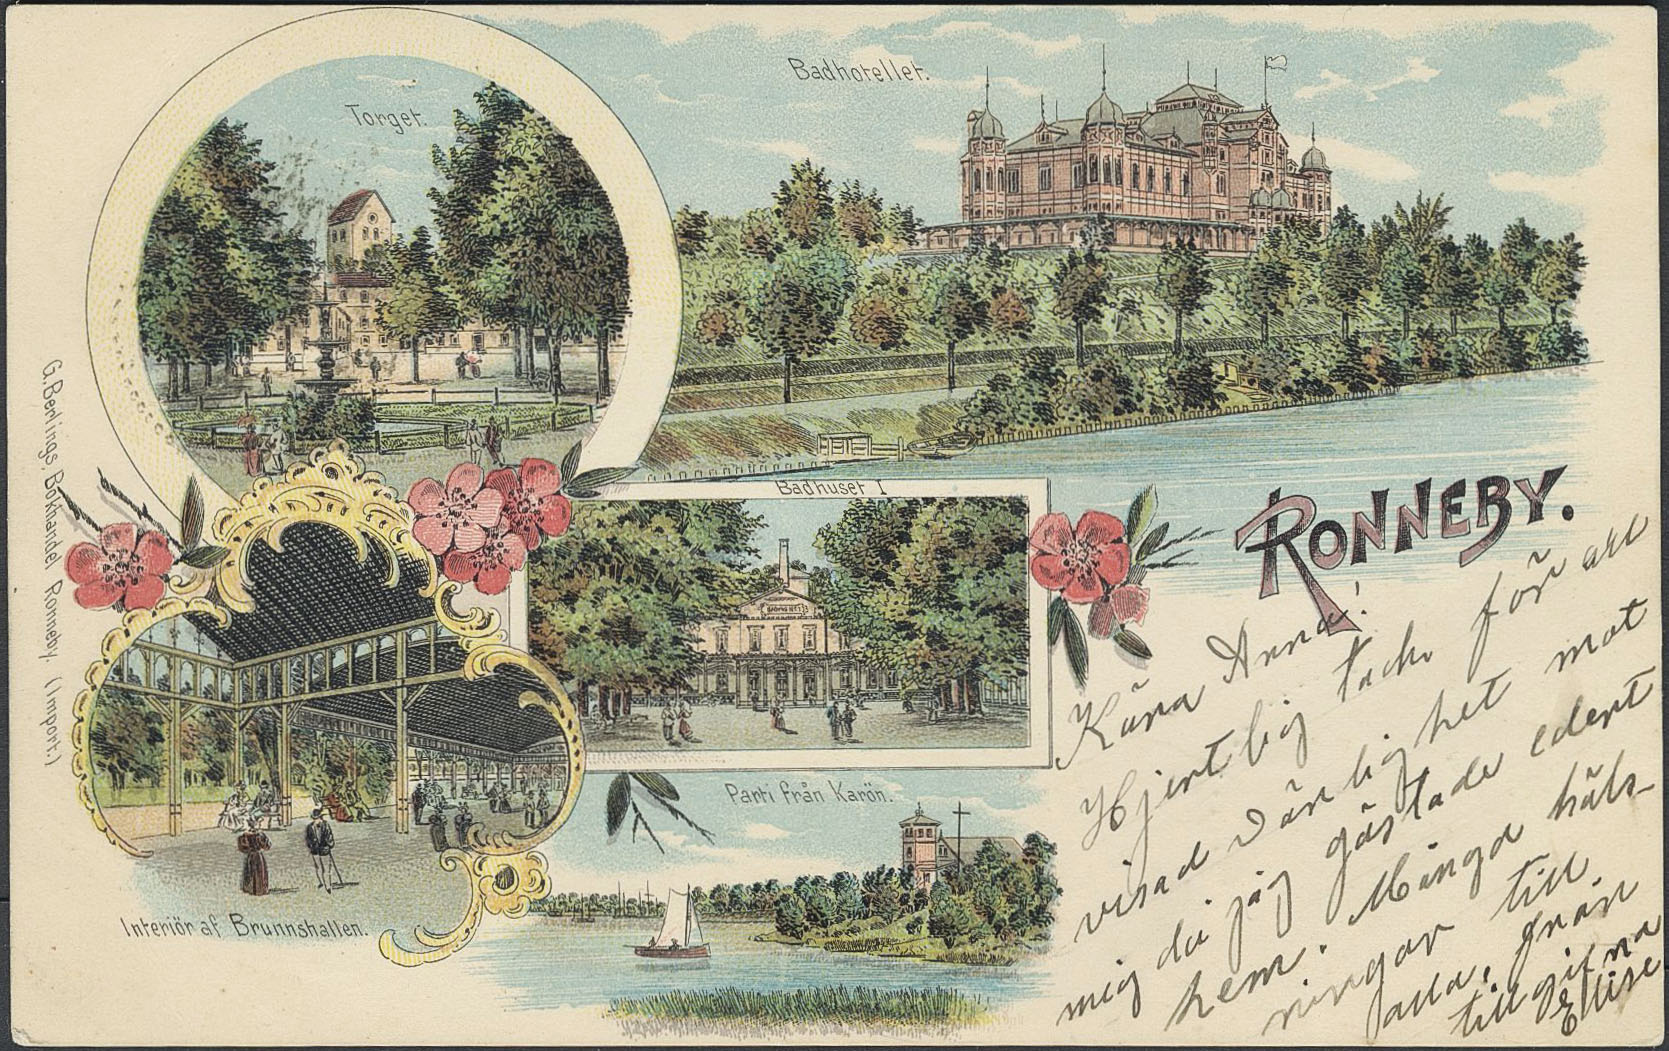 Torget.
Badhotellet.
G. Berlings, Bokhandel, Ronneby. (Import.)
Badhuset I
RONNEBY.
Interiör af Brunnshallen.
Parti från Karön.
Kära Anna!
Hjertlig tack för all
visad vänlighet mot
mig då jag gästade edert
hem. Många häls-
ningar till
alla, från
tillgifna
Elise